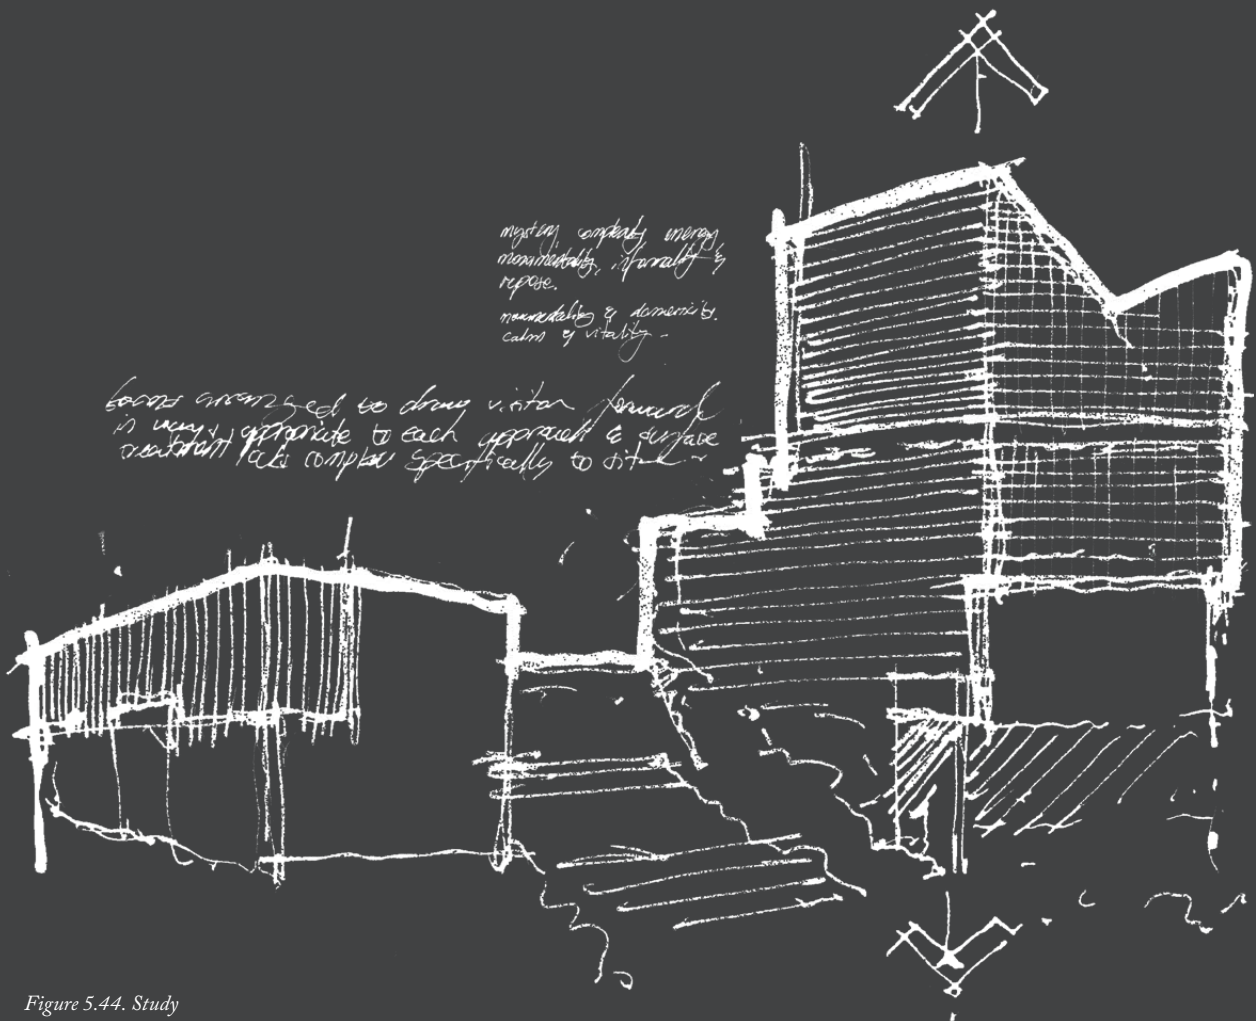 mystery complexity energy
monumentality, informality &
repose.
& domesticity.
calm & vitality -
to draw visitor forward
in ways appropriate to each approach & surface
treatment specifically to
Figure 5.44. Study